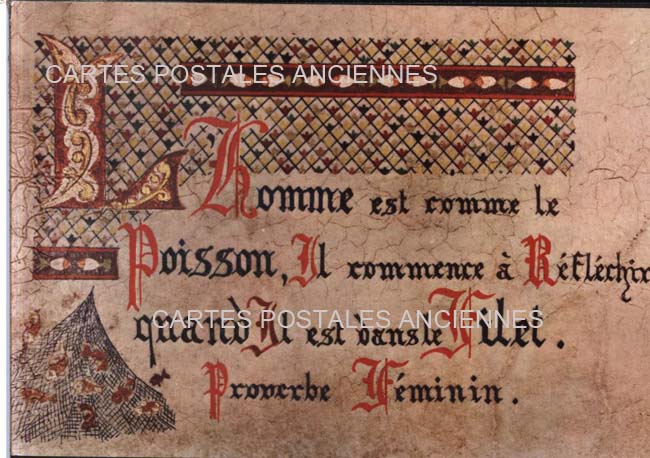 CARTES POSTALES ANCIENNES
L'homme est comme le
Poisson, Il commence à Réfléchir
quand Il est dans le Filet.
CARTES POSTALES ANCIENNES
Proverbe Féminin.